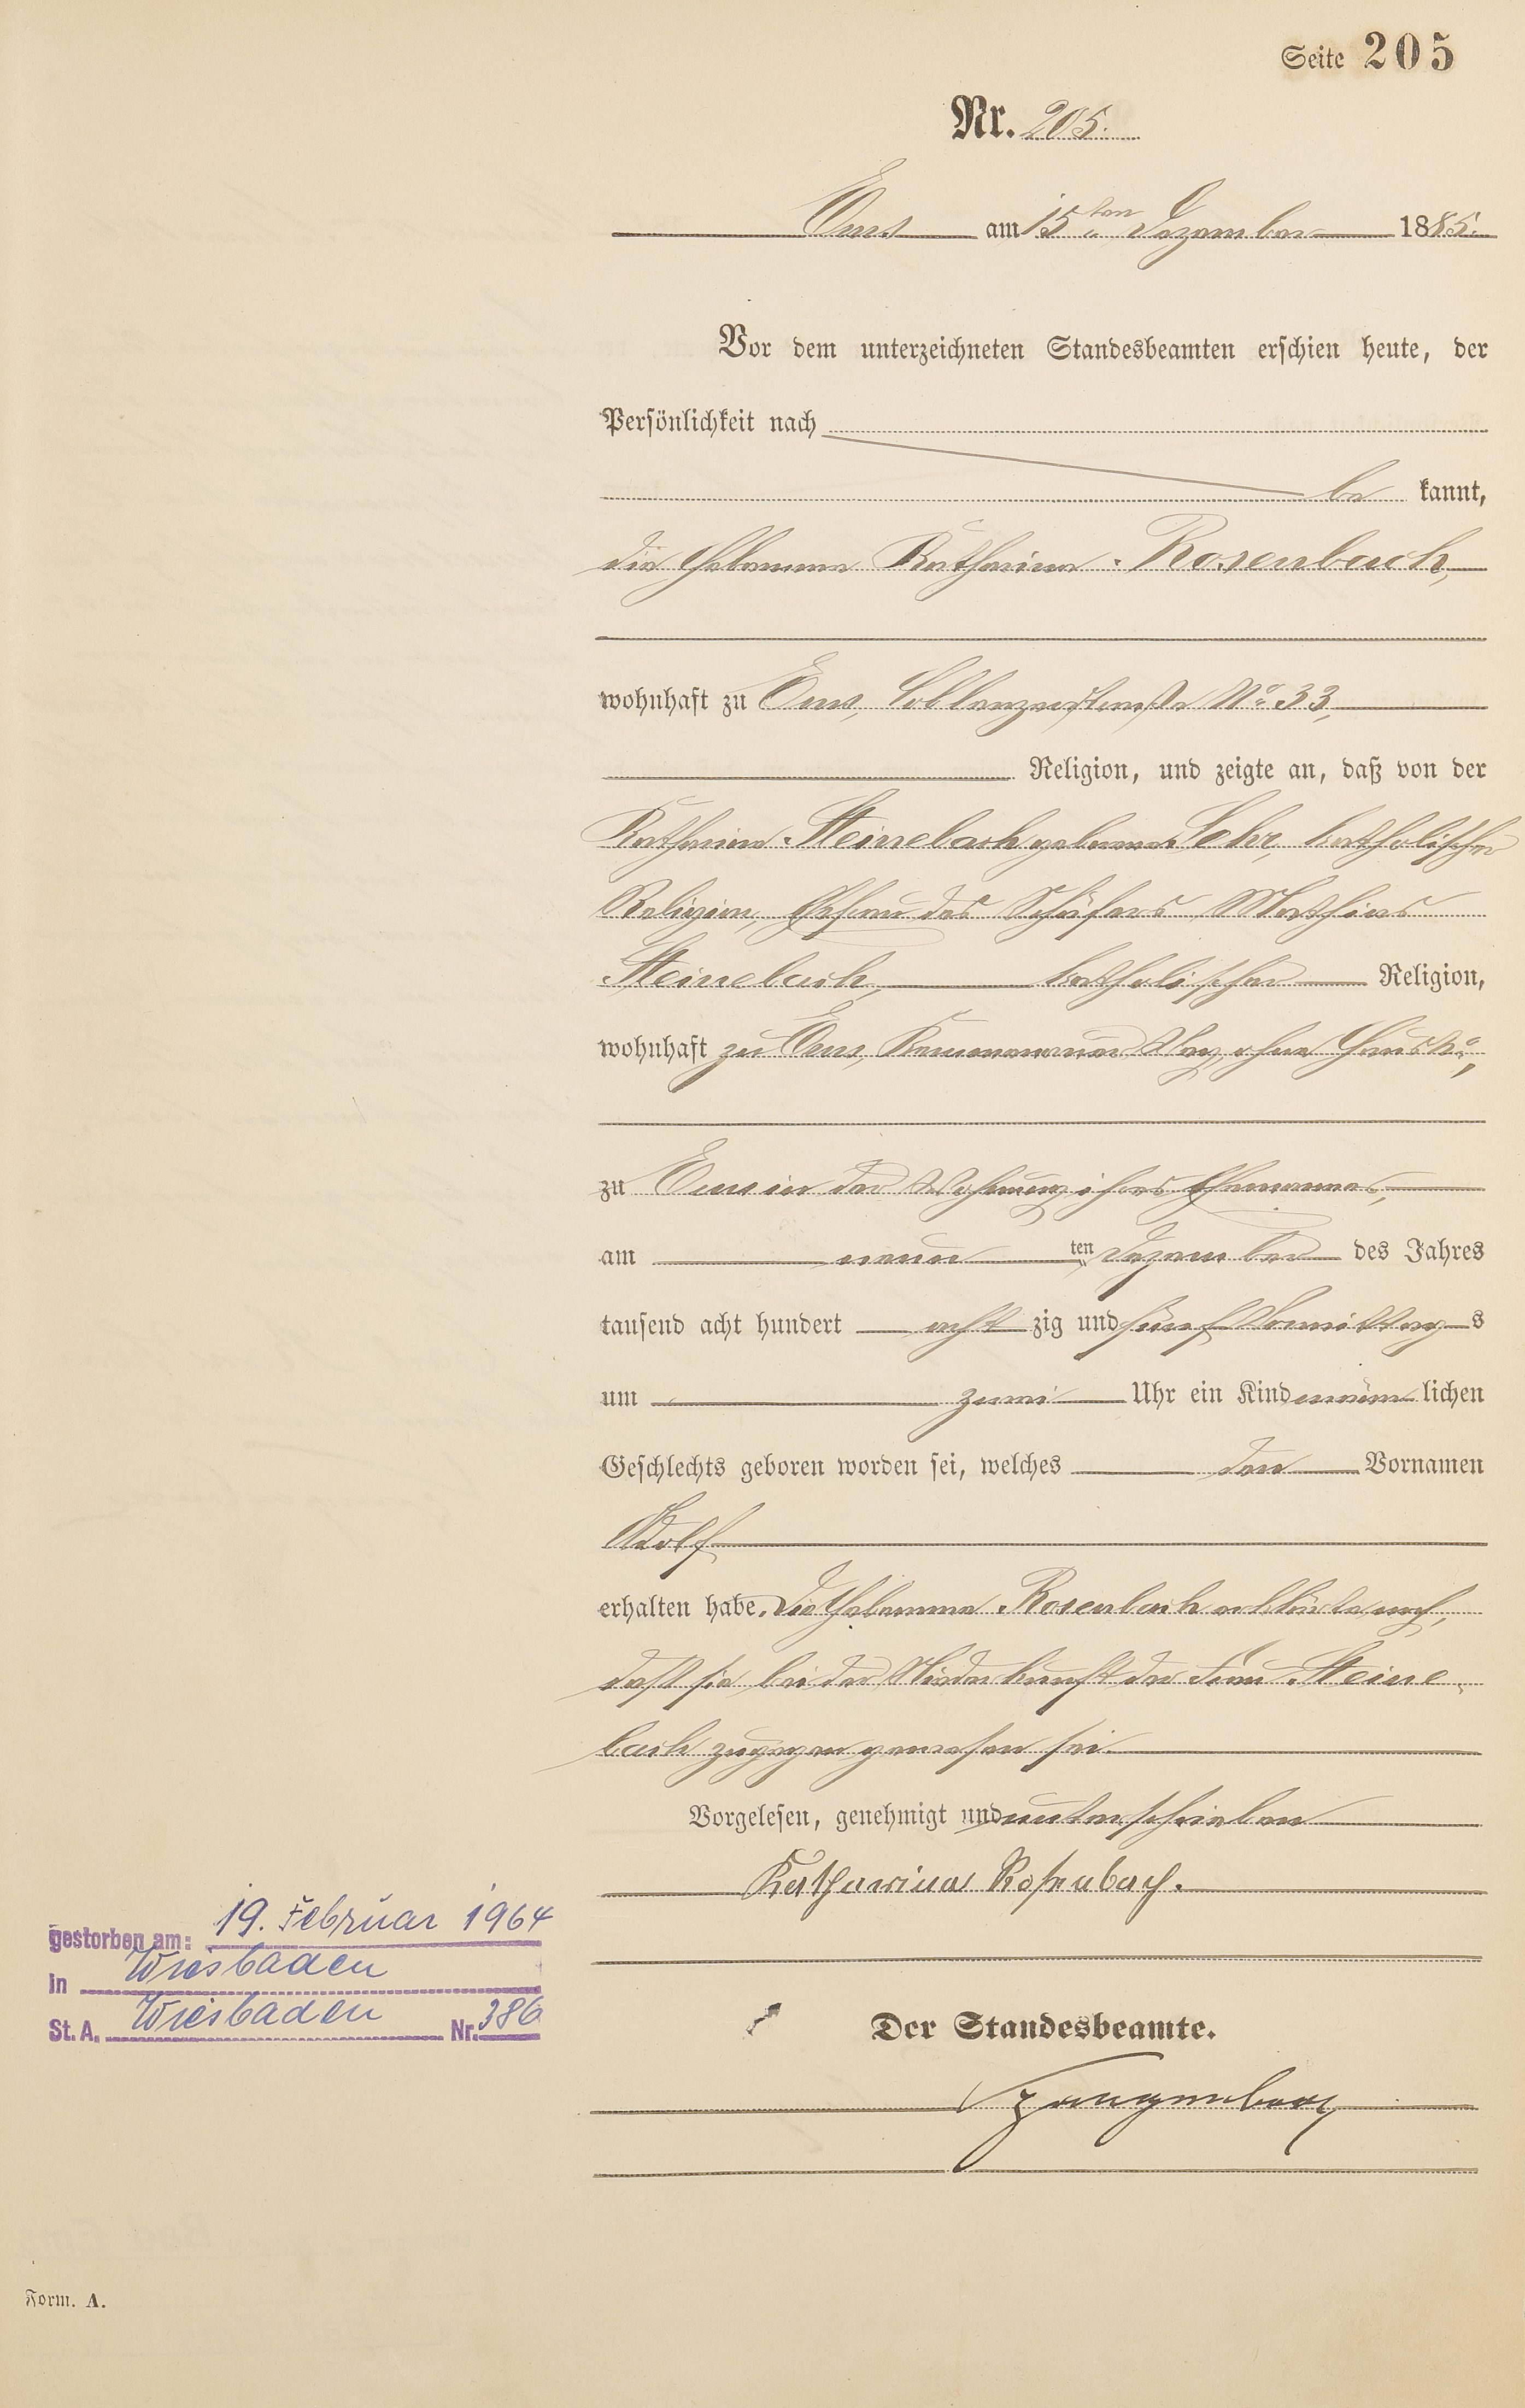 Seite 205
Nr. 205.
Ems am 15ten Dezember 1885.
Vor dem unterzeichneten Standesbeamten erschien heute, der
Persönlichkeit nach
be kannt,
die Hebamme Katharina Rosenbach,
wohnhaft zu Ems, Coblenzerstraße No 33,
Religion, und zeigte an, daß von der
Katharina Steinebach geborene Lehr, katholischer
Religion, Ehefrau des Schäfers Mathias
Steinebach, katholischer Religion,
wohnhaft zu Ems, ohne Haus No,
zu Ems in der Wohnung ihres Ehemannes,
am neun ten Dezember des Jahres
tausend acht hundert acht zig und fünf Vormittag s
um zwei Uhr ein Kind männ lichen
Geschlechts geboren worden sei, welches den Vornamen
Adolf
erhalten habe. Die Hebamme Rosenbach erklärte noch,
daß sie bei der Niederkunft der Frau Steine
bach zugegen gewesen sei.
Vorgelesen, genehmigt und unterschrieben
Katharina Rosenbach.
gestorben am: 19. Februar 1964
in Wiesbaden
St. A. Wiesbaden Nr. 386
Der Standesbeamte.
Form. A.